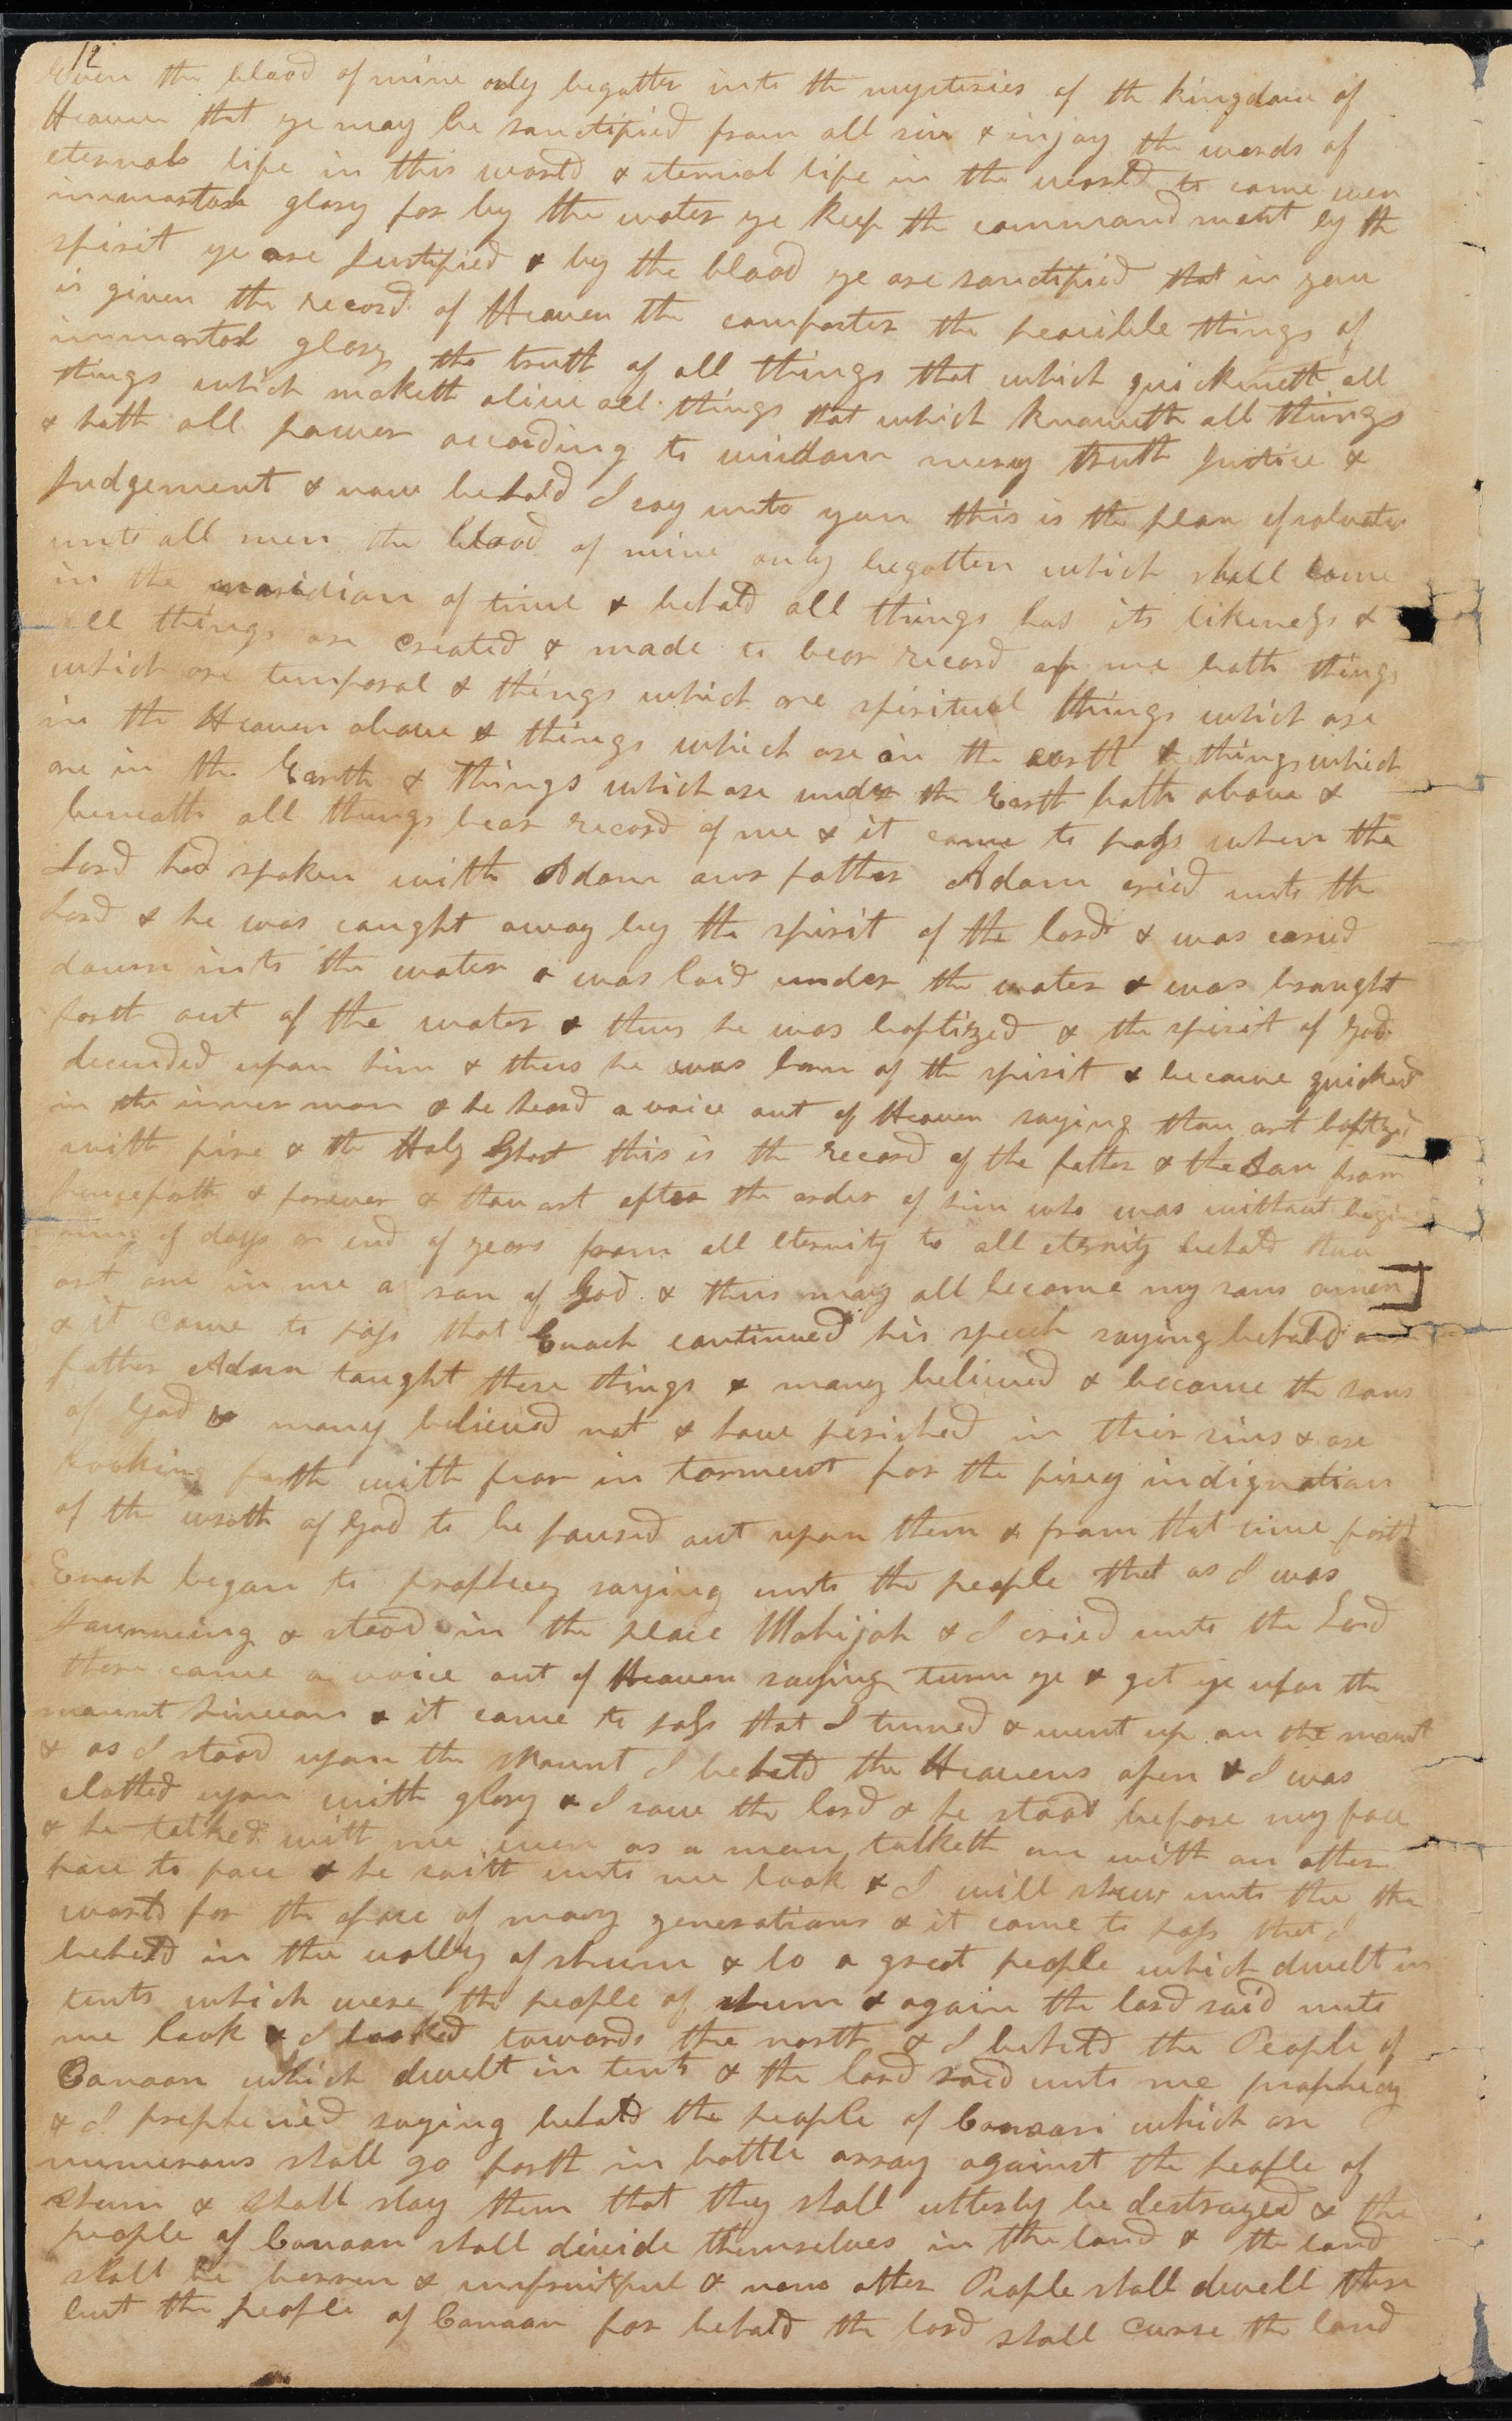 12
Even the blood of mine only begotten into the mysteries of the kingdom of
Heaven that ye may be sanctified from all sin & injoy the words of
eternal life in this world & eternal life in the world to come even
immortal glory for by the water ye keep the commandment by the
spirit ye are Justified & by the blood ye are sanctified that in you
is given the record of Heaven the comforter the peacible things of
immortal glory the truth of all things that which quickeneth all
things which maketh alive all things that which knoweth all things
& hath all power according to wisdom mercy truth Justice &
Judgement & now behold I say unto you this is the plan of salvation
unto all men the blood of mine only begotten which shall come
in the maridian of time & behold all things has its likeness &
all things are created & made to bear record of me both things
which are temporal & things which are spiritual things which are
in the Heaven above & things which are on the earth & things which
are in the Earth & things which are under the Earth both above &
beneath all things bear record of me & it came to pass when the
Lord had spoken with Adam our father Adam cried unto the
Lord & he was caught away by the spirit of the lord & was caried
down into the water & was laid under the water & was brought
forth out of the water & thus he was baptized & the spirit of God
decended upon him & thus he was born of the spirit & became quickned
in the inner man & he heard a voice out of Heaven saying thou art baptized
with fire & the Holy Ghost this is the record of the father & the Son from
henceforth & forever & thou art after the order of him who was without begin
ning of days or end of years from all eternity to all eternity behold thou
art one in me a son of God & thus may all become my sons amen]
& it came to pass that Enoch continued his speech saying behold our
father Adam taught these things & many believed & became the sons
of God & many believed not & have perished in their sins & are
looking forth with fear in torment for the firey indignation
of the wrath of God to be poured out upon them & from that time forth
Enoch began to prophecy saying unto the people that as I was
Journeing & stood in the place Mahijah & I cried unto the Lord
there came a voice out of Heaven saying turn ye & get ye upon the
mount Simeon & it came to pass that I turned & went up on the mount
& as I stood upon the Mount I beheld the Heavens open & I was
clothed upon with glory & I saw the lord & he stood before my face
& he talked with me even as a man talketh one with an other
face to face & he saith unto me look & I will shew unto thee the
world for the space of many generations & it came to pass that I
beheld in the valley of shum & lo a great people which dwelt in
tents which were the people of shum & again the lord said unto
me look & I looked towards the north & I beheld the People of
Canaan which dwelt in tents & the lord said unto me prophecy
& I prophecied saying behold the people of Canaan which are
numerous shall go forth in battle array against the people of
shum & shall slay them that they shall utterly be destroyed & the
people of Canaan shall divide themselves in the land & the land
shall be barren & unfruitful & none other People shall dwell there
but the people of Canaan for behold the lord shall curse the land